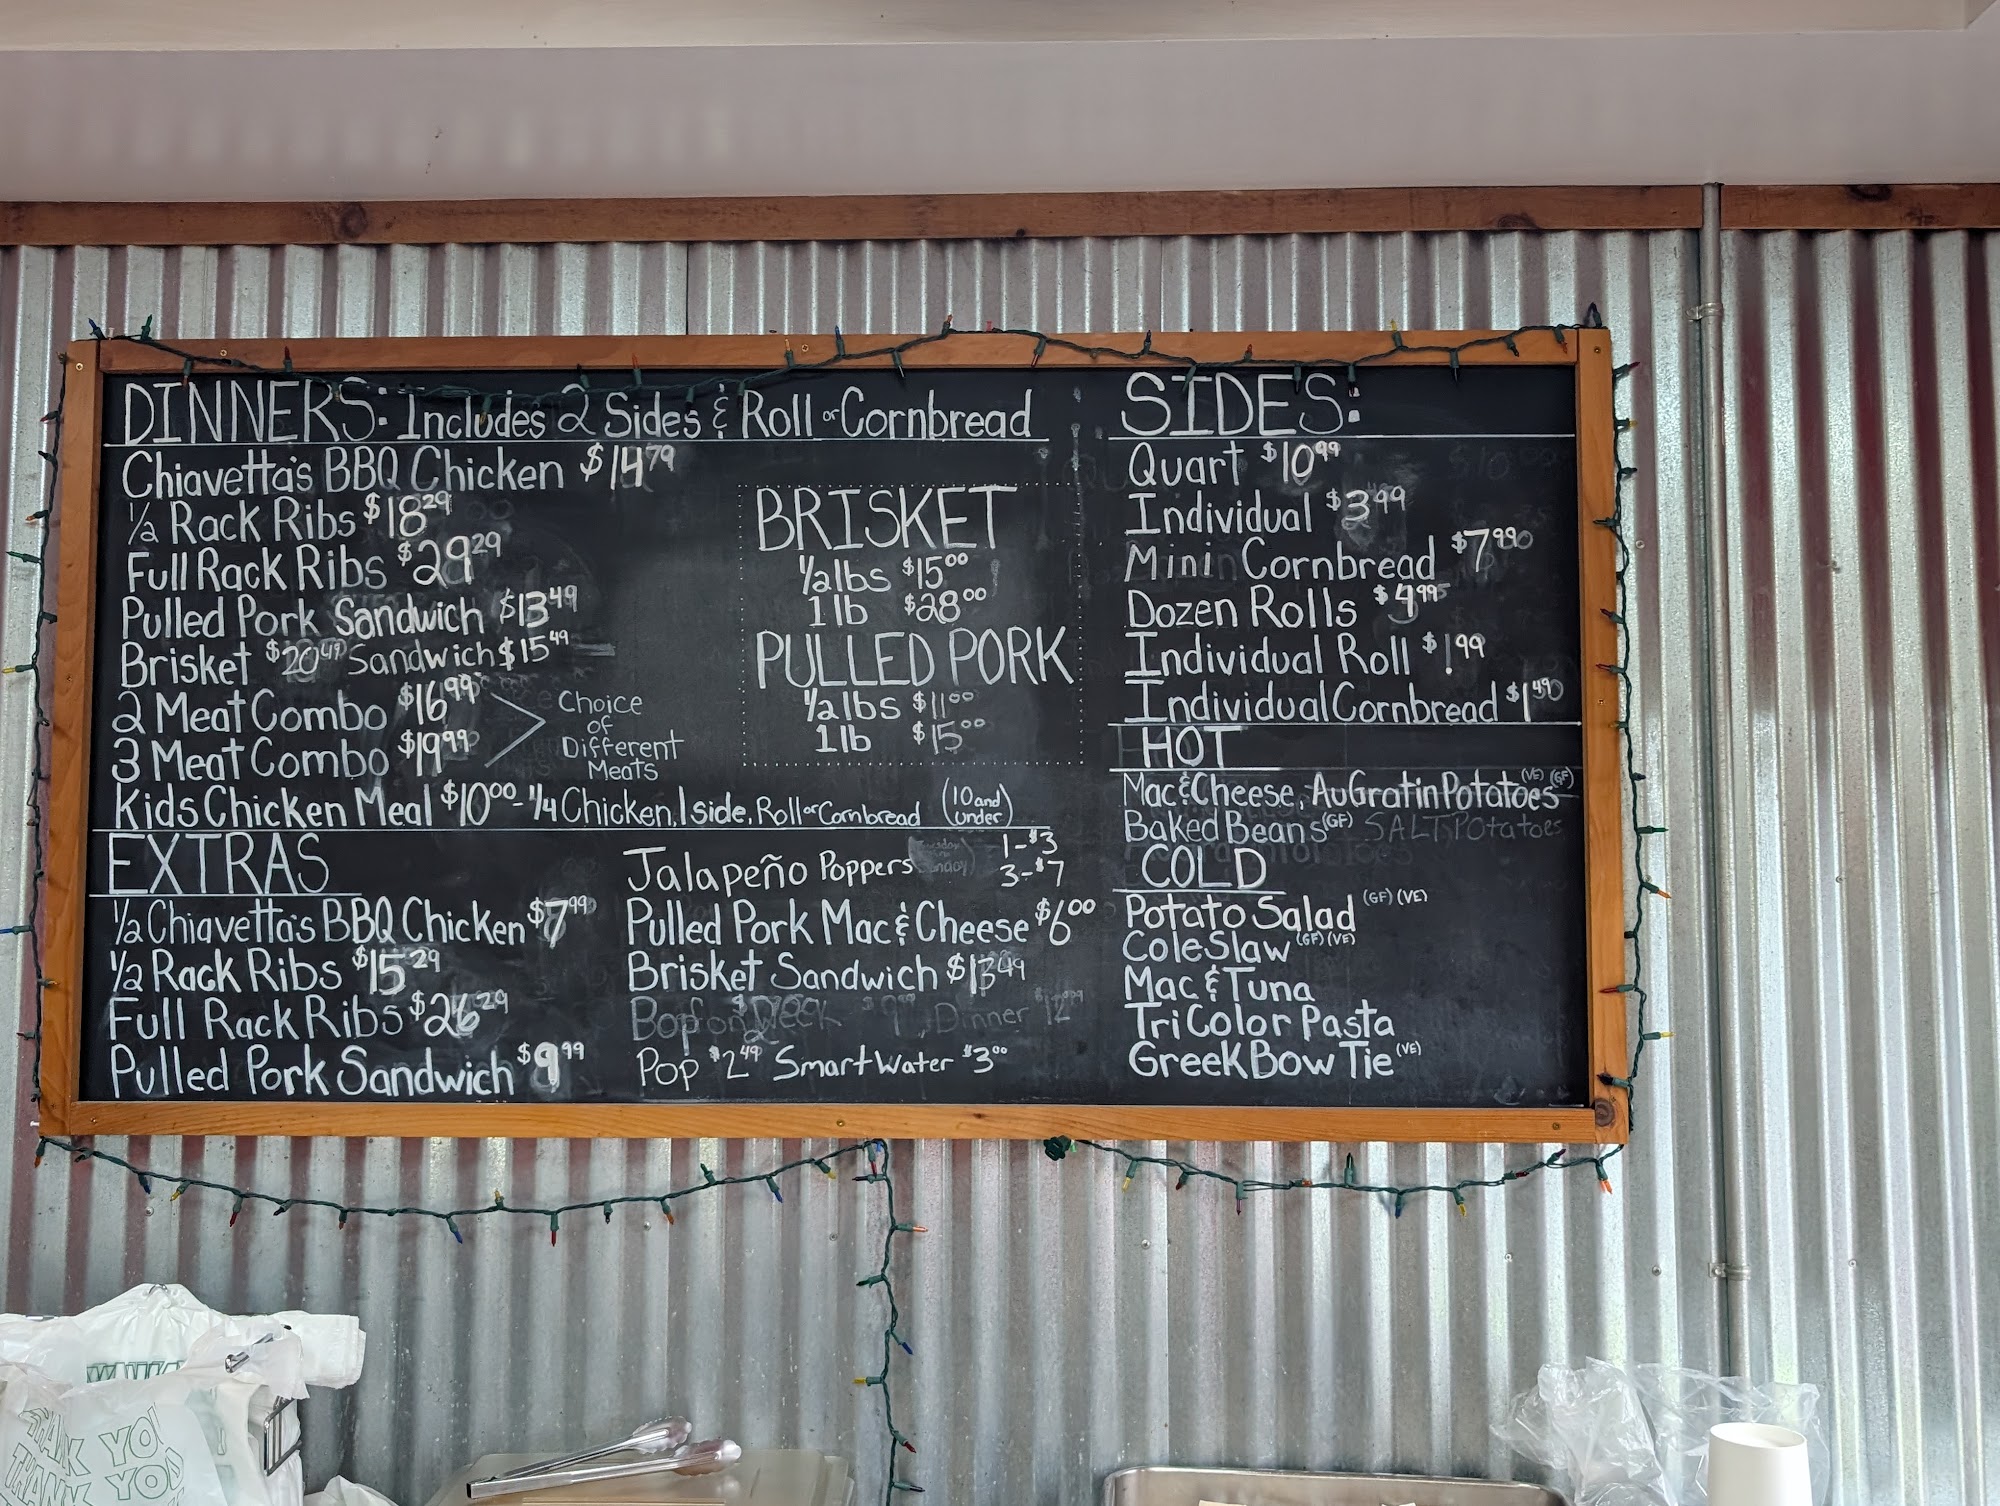 DINNERS: Includes 2 Sides & Roll or Cornbread
Chiavetta's BBQ Chicken $14.79
1/2 Rack Ribs $18.29
Full Rack Ribs $29.29
Pulled Pork Sandwich $13.49
Brisket $20.49 Sandwich $15.49
2 Meat Combo $16.99
3 Meat Combo $19.99
Choice
of
Different
Meats
Kids Chicken Meal $10.00 - 1/4 Chicken, 1 side, Roll or Cornbread (10 and under)
BRISKET
1/2 lbs $15.00
1 lb $28.00
PULLED PORK
1/2 lbs $11.00
1 lb $15.00
EXTRAS
1/2 Chiavetta's BBQ Chicken $7.99
1/2 Rack Ribs $15.29
Full Rack Ribs $26.29
Pulled Pork Sandwich $9.99
Jalapeño Poppers 1-$3
3-$7
Pulled Pork Mac & Cheese $6.00
Brisket Sandwich $13.49
Dinner
Pop $2.49 Smart Water $3.00
SIDES:
Quart $10.99
Individual $3.99
Mini Cornbread $7.99
Dozen Rolls $4.99
Individual Roll $1.99
Individual Cornbread $1.49
HOT
Mac & Cheese, AuGratin Potatoes (VE) (GF)
Baked Beans (GF) SALT Potatoes
COLD
Potato Salad (GF) (VE)
Cole Slaw (GF) (VE)
Mac & Tuna
Tri Color Pasta
Greek Bow Tie (VE)
THANK YOU
THANK YOU